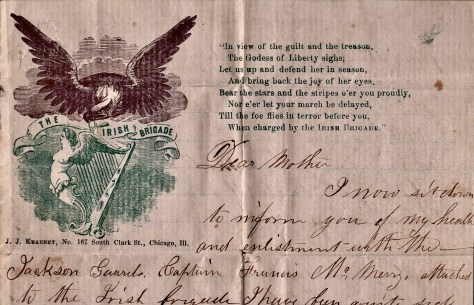 "In view of the guilt and the treason,
The Godess of Liberty sighs;
Let us up and defend her in season,
And bring back the joy of her eyes,
Bear the stars and the stripes o'er you proudly,
Nor e'er let your march be delayed,
Till the foe flies in terror before you,
When charged by the IRISH BRIGADE."
THE IRISH BRIGADE
J. J. KEARNEY, No. 167 South Clark St., Chicago, Ill.
Dear Mother
I now sit down
to inform you of my health
and enlistment with the
Jackson Guards. Captain Francis Mc Merry, attached
to the Irish brigade I have been